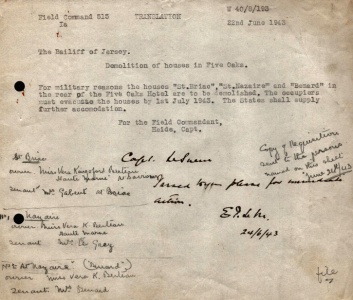 Field Command 515
Ia
TRANSLATION
W 40/6/193
22nd June 1943
The Bailiff of Jersey.
Demolition of houses in Five Oaks.
For military reasons the houses "St.Briac", "St.Nazaire" and "Renard" in
the rear of the Five Oaks Hotel are to be demolished. The occupiers
must evacuate the houses by 1st July 1943. The States shall supply
further accomodation.
For the Field Commandant,
Heide, Capt.
Copy of Requisition
sent to the persons
named on this sheet
June 24/43
St. Briac
owner Miss Vera Kingsford Benteau
St Saviour
tenant Mr. Gabriel
Capt. Le Sueur
Passed to you please for immediate
action.
24/6/43
No. 1 St Nazaire
owner Miss Vera K. Benteau
tenant Mr. Le Geay
No 2 St Nazaire ("Renard")
owner Miss Vera K. Benteau
tenant Mr. Renard
file